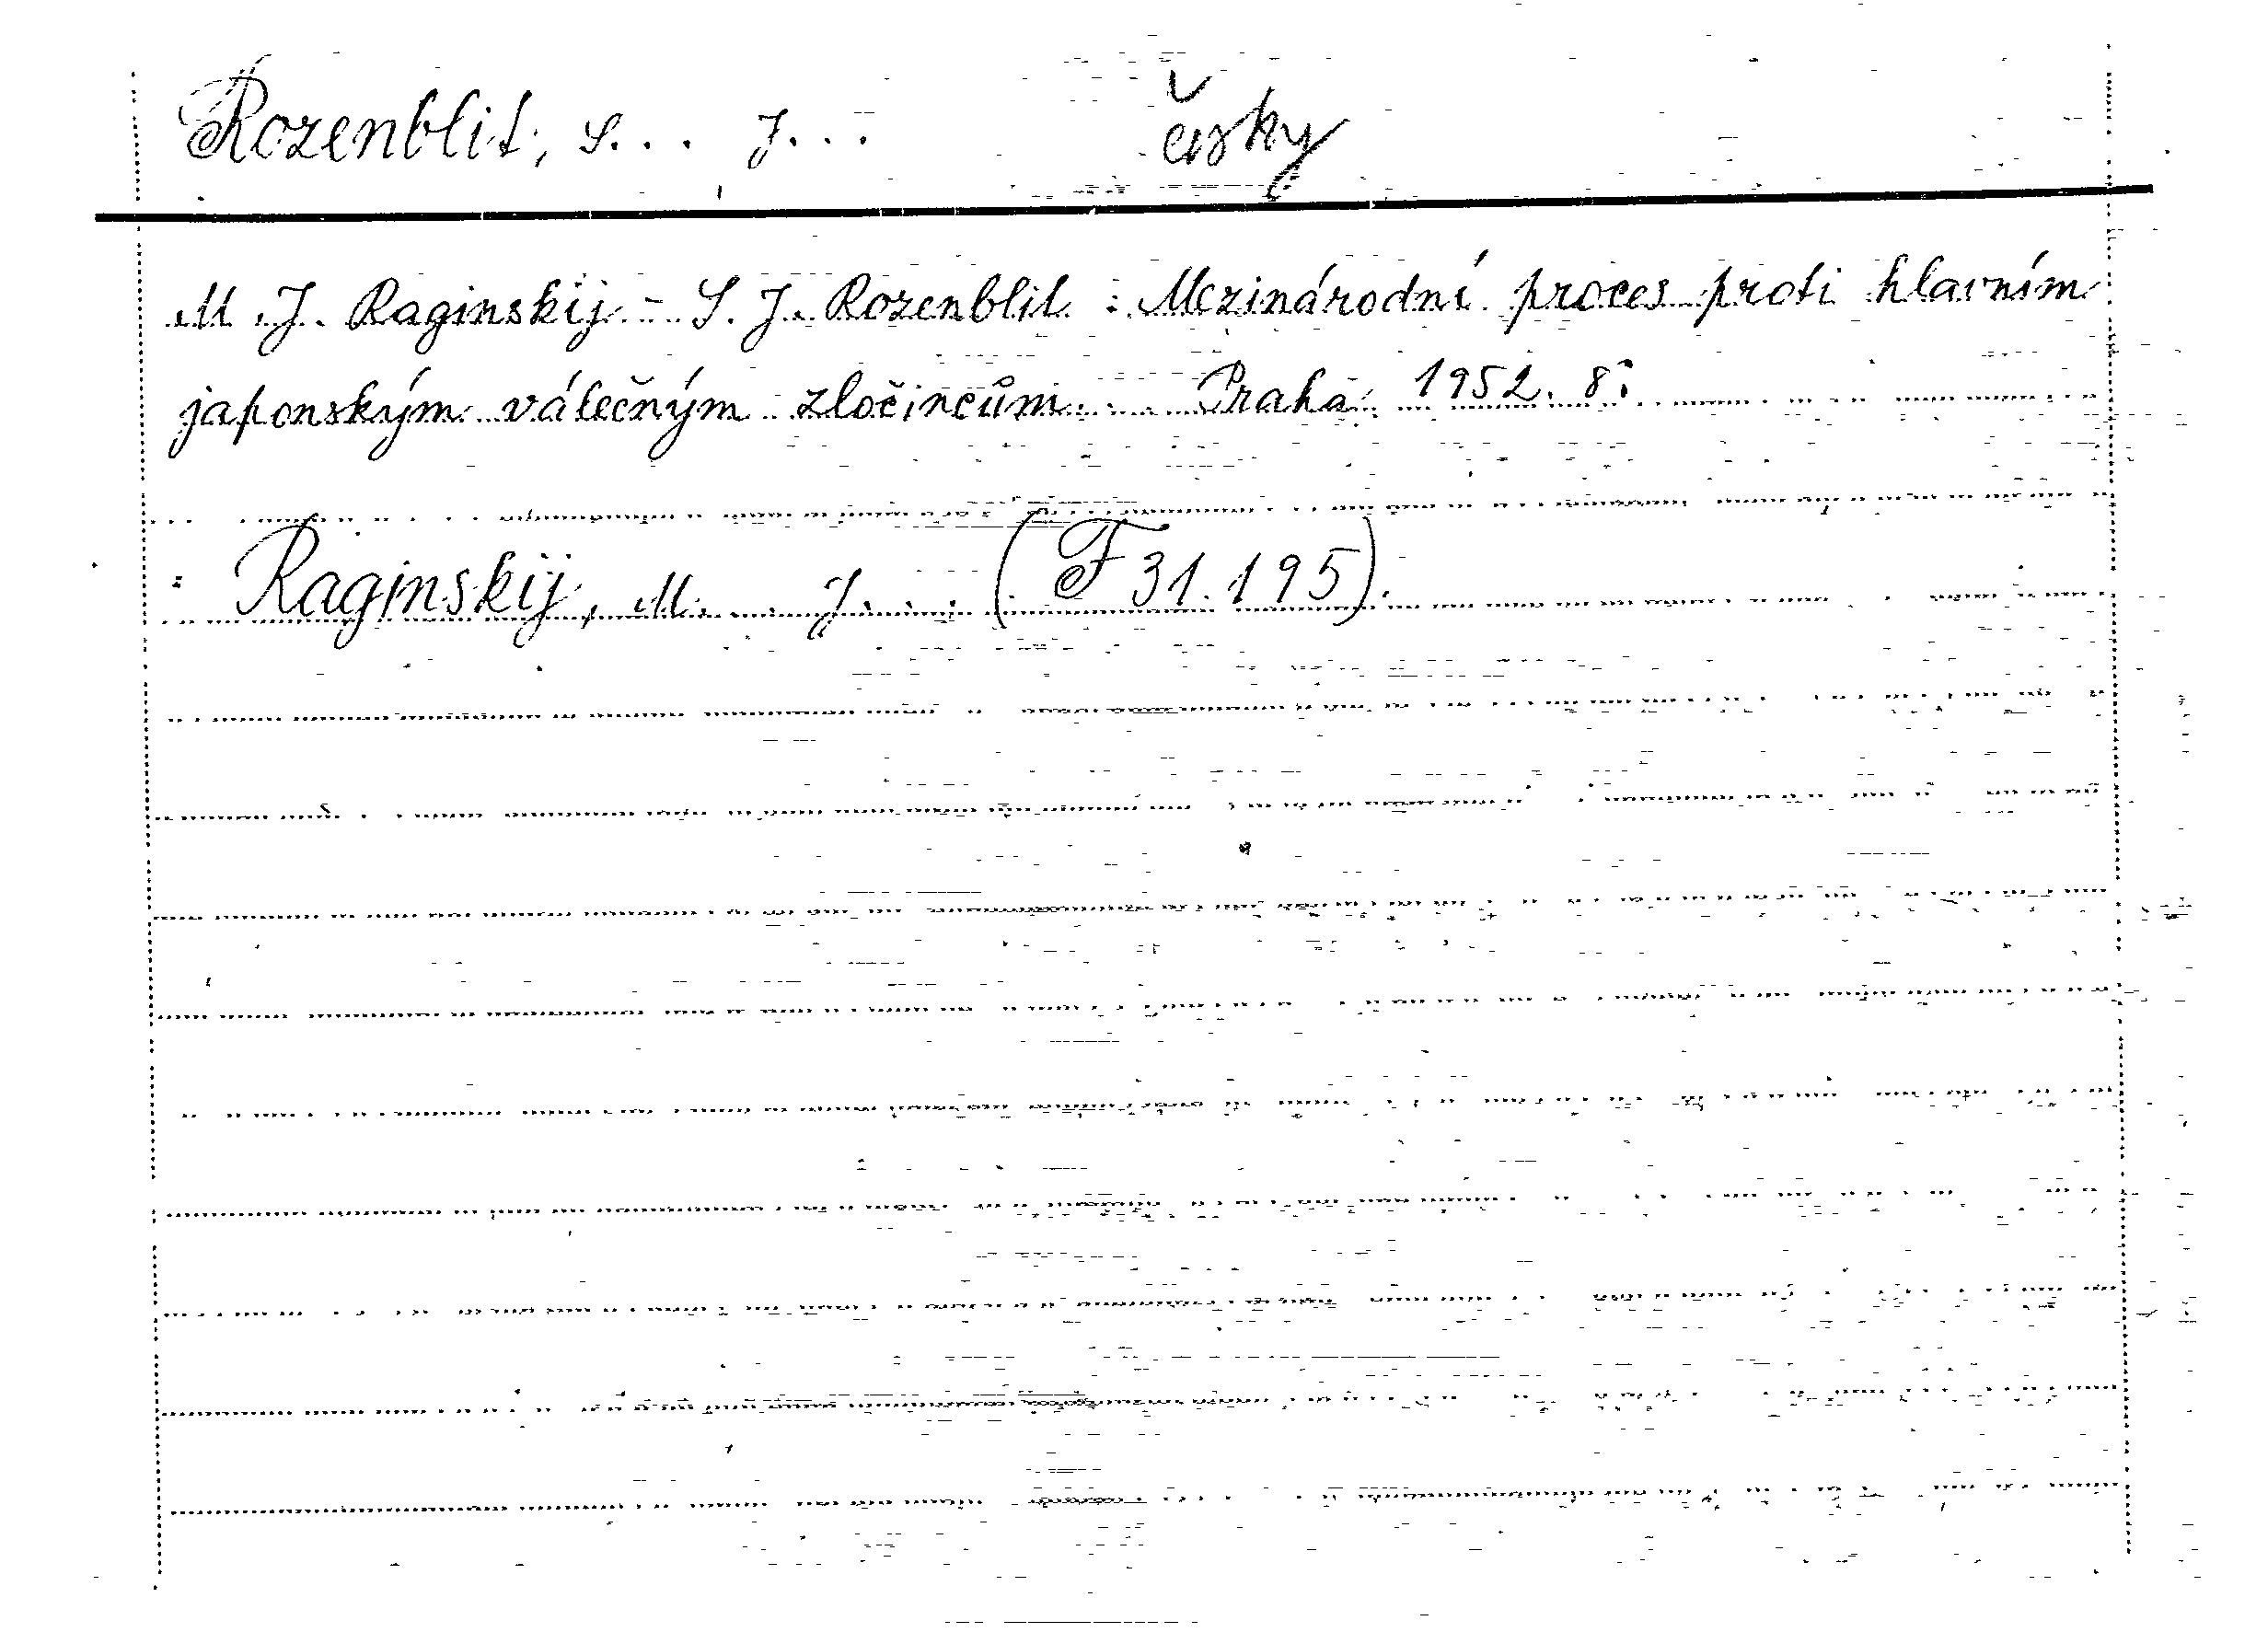 Rozenblit, S... J... česky
M. J. Raginskij - S. J. Rozenblit : Mezinárodní proces proti hlavním
japonským válečným zločincům. Praha 1952. 8°.
: Raginskij, M... J... (F 31.195).